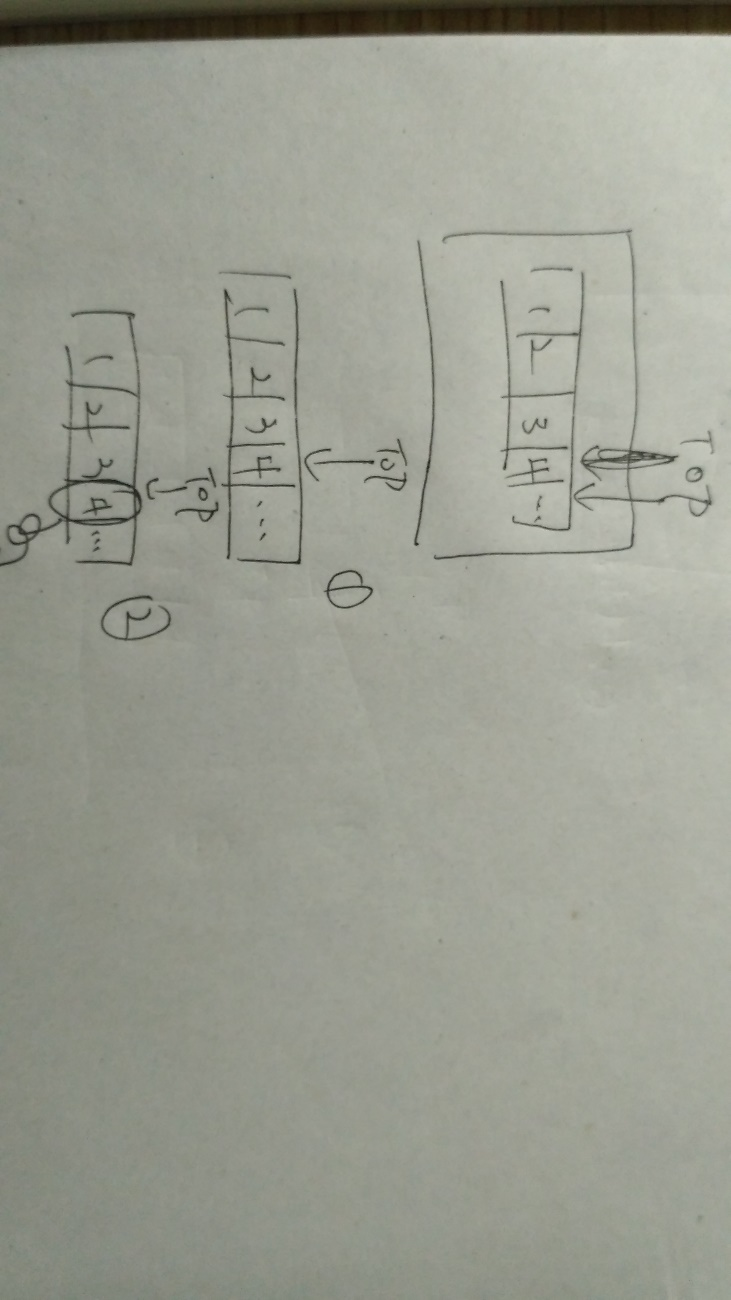 TOP
1 2 3 4 ...
TOP
1 2 3 4 ...
①
TOP
1 2 3 4 ...
②